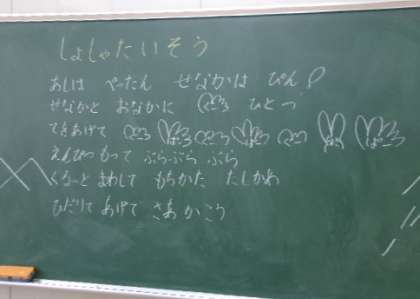 しょしゃたいそう
あしは ぺったん せなかは ぴん!
せなかと おなかに ぐう ひとつ
てをあげて ぐう ぱあ ぐう ぱあ ぐう ちょき ぱあ
えんぴつ もって ぶらぶら ぶら
くるーと まわして もちかた たしかめ
ひだりて あげて さあ かこう